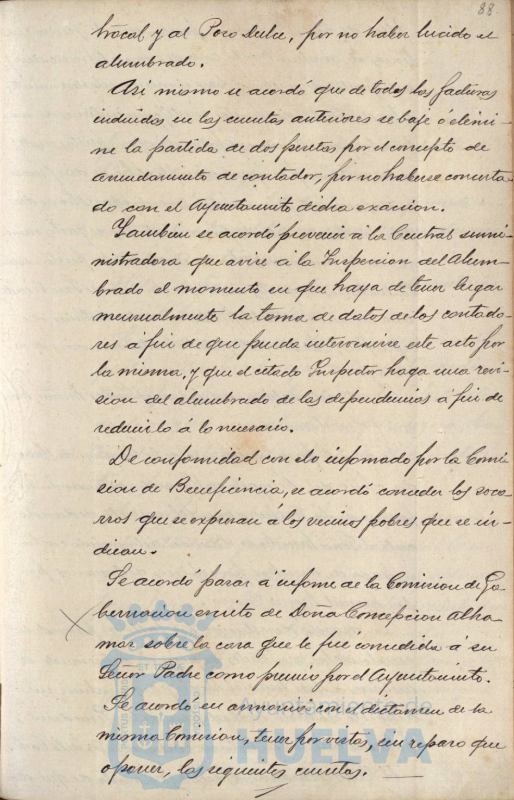 88.
trocal y al Pozo Dulce, por no haber lucido el
alumbrado.
Asi mismo se acordó que de todas las facturas
incluidas en las cuentas anteriores se baje ó elimi-
ne la partida de dos pesetas por el concepto de
arrendamiento de contador, por no haberse concerta-
do con el Ayuntamiento dicha exaccion.
Tambien se acordó prevenir á la Central sumi-
nistradora que avise á la Inspeccion del Alum-
brado el momento en que haya de tener lugar
mensualmente la toma de datos de los contado-
res á fin de que pueda intervenirse este acto por
la misma, y que el citado Inspector haga una revi-
sion del alumbrado de las dependencias á fin de
reducirlo á lo necesario.
De conformidad con lo informado por la Comi-
sion de Beneficencia, se acordó conceder los soco-
rros que se expresan á los vecinos pobres que se in-
dican.
Se acordó pasar á informe de la Comision de Go-
bernacion escrito de Doña Concepcion Alha-
mar sobre la casa que le fué concedida á su
Señor Padre como premio por el Ayuntamiento.
Se acordó en armonia con el dictamen de la
misma Comision, tener por vistas, sin reparo que
oponer, las siguientes cuentas.
Ayuntamiento de
HUELVA